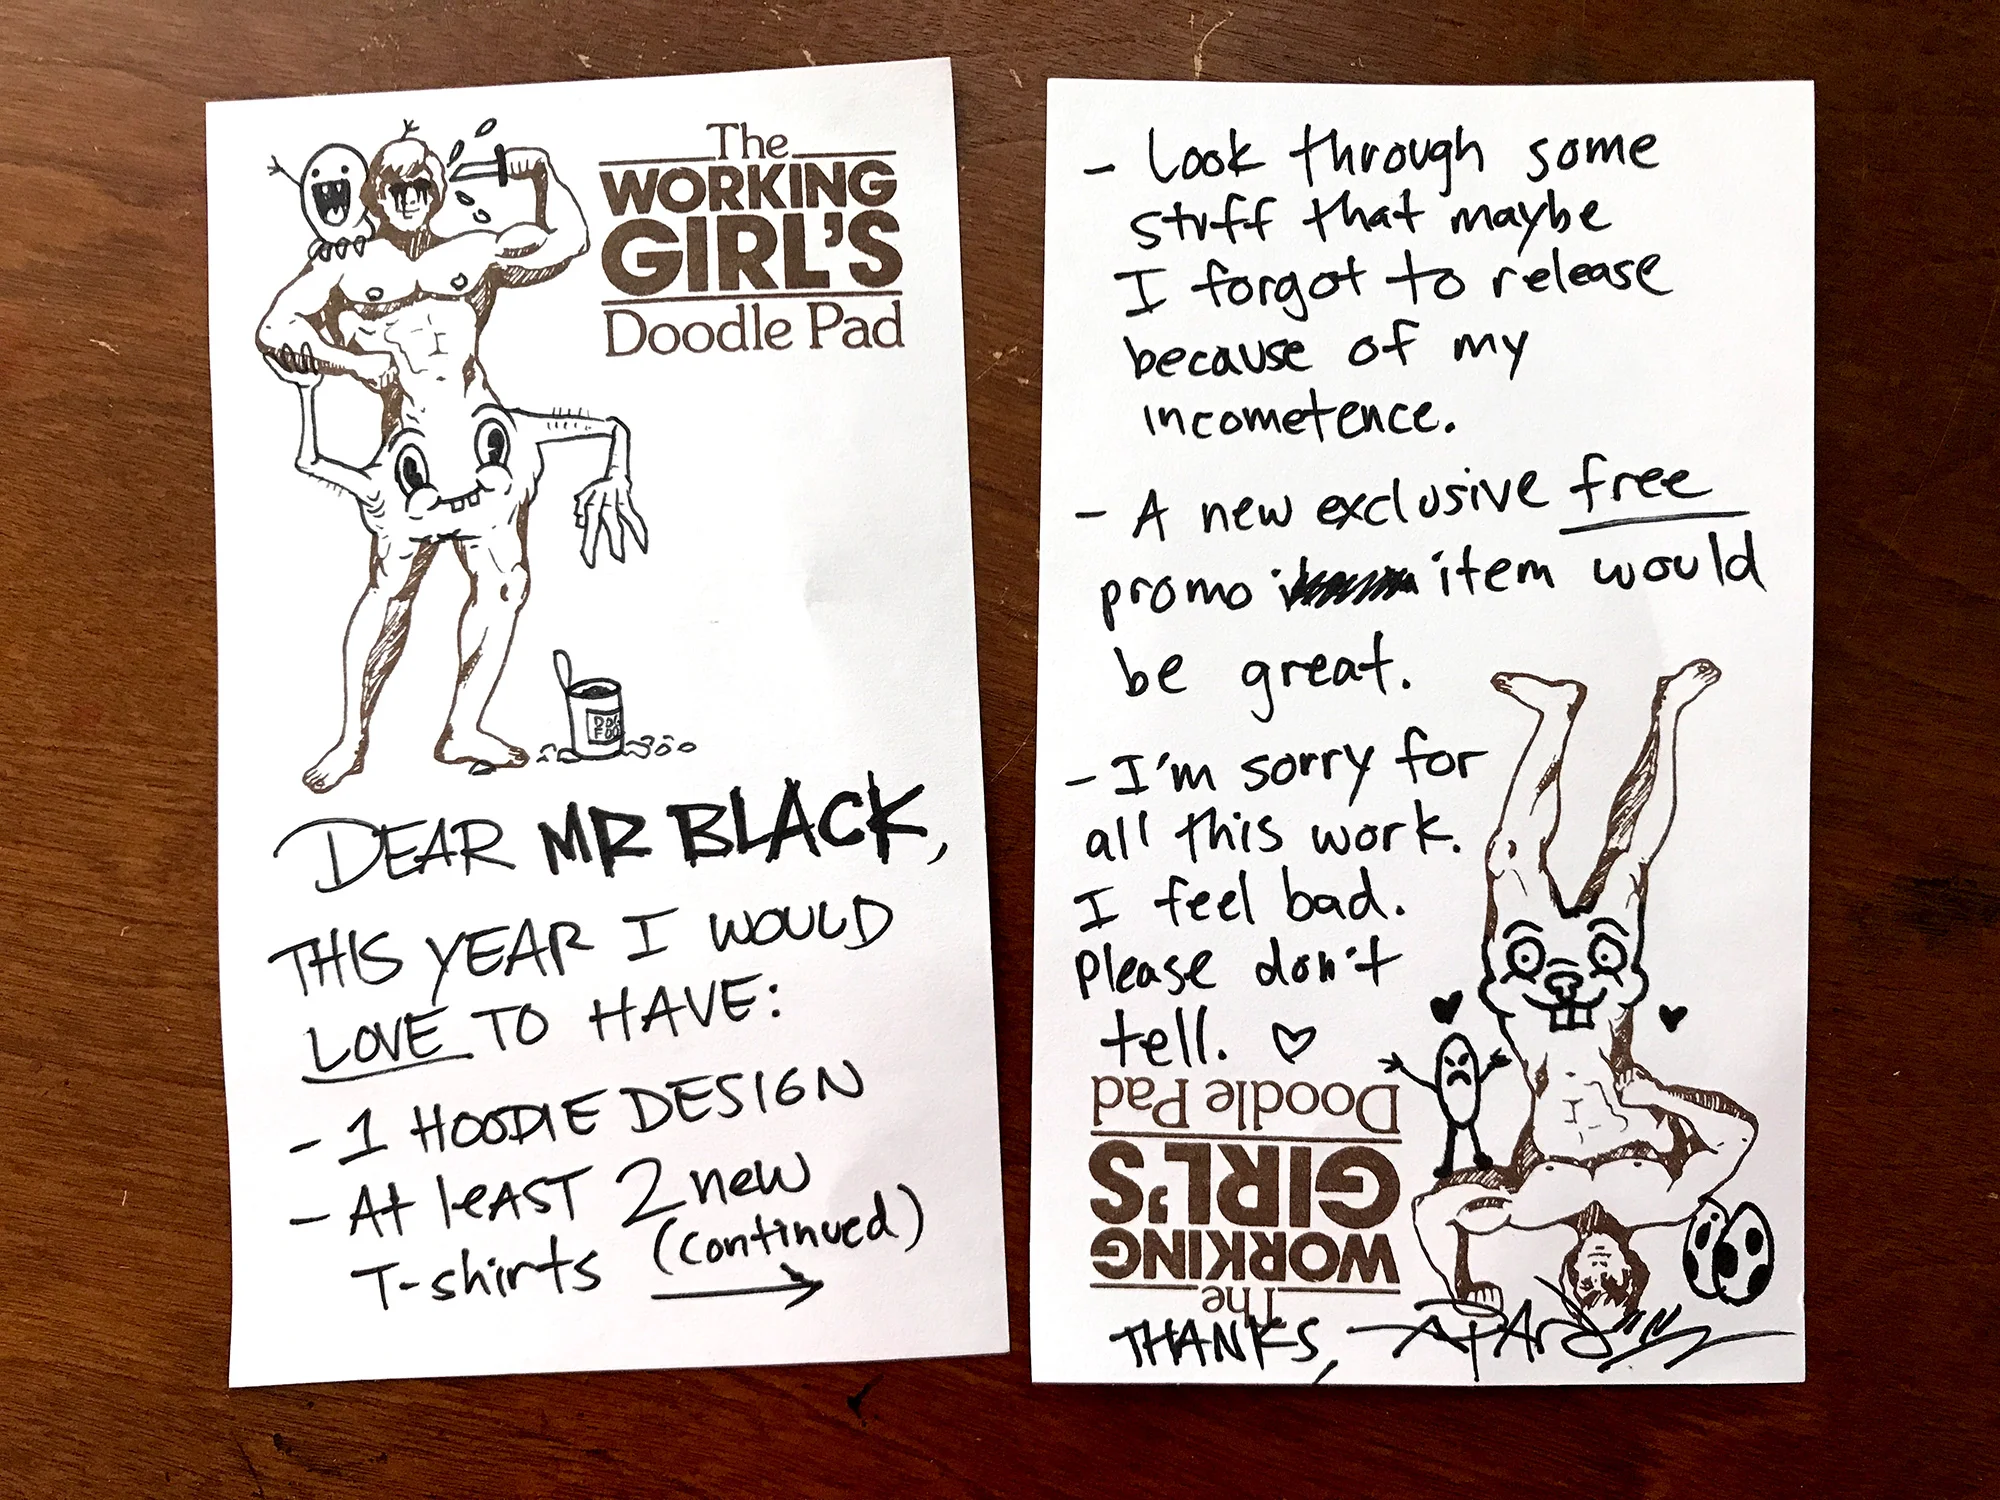 The
WORKING
GIRL'S
Doodle Pad
DOG
FOO
DEAR MR BLACK,
THIS YEAR I WOULD
LOVE TO HAVE:
- 1 HOODIE DESIGN
- At leAST 2 new
T-shirts (continued)
- Look through some
stuff that maybe
I forgot to release
because of my
incometence.
- A new exclusive free
promo item would
be great.
- I'm sorry for
all this work.
I feel bad.
Please don't
tell. ♡
Doodle Pad
GIRL'S
WORKING
The
THANKS,